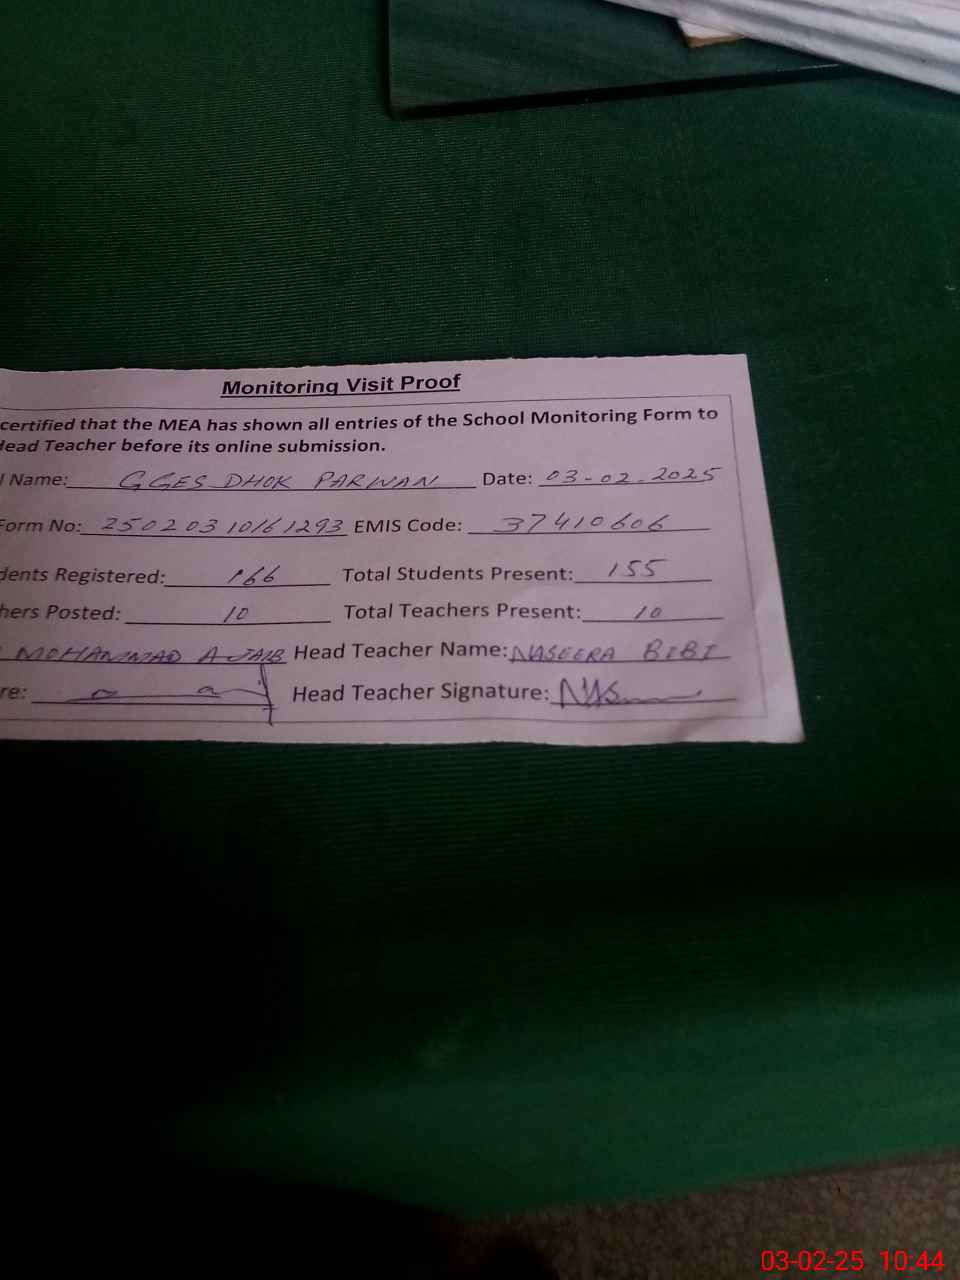 Monitoring Visit Proof
certified that the MEA has shown all entries of the School Monitoring Form to
Head Teacher before its online submission.
l Name: GGES DHOK PARWAN Date: 03-02-2025
Form No: 25020310161293 EMIS Code: 37410606
dents Registered: 166 Total Students Present: 155
hers Posted: 10 Total Teachers Present: 10
MOHAMMAD AJAIB Head Teacher Name: NASEERA BIBI
re: Head Teacher Signature:
03-02-25 10:44